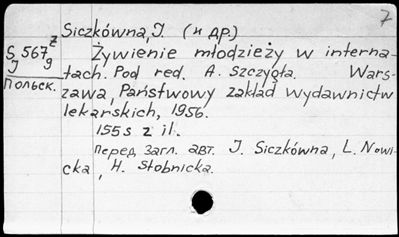 7
Siczkówna, J. (и др.)
S 567 z
J 9
Польск.
Żywienie młodzieży w interna-
tach. Pod red. A. Szczygła. Wars-
zawa, Państwowy zakład wydawnictw
lekarskich, 1956.
155 s z il.
перед загл. авт. J. Siczkówna, L. Nowi-
cka, H. Stobnicka.